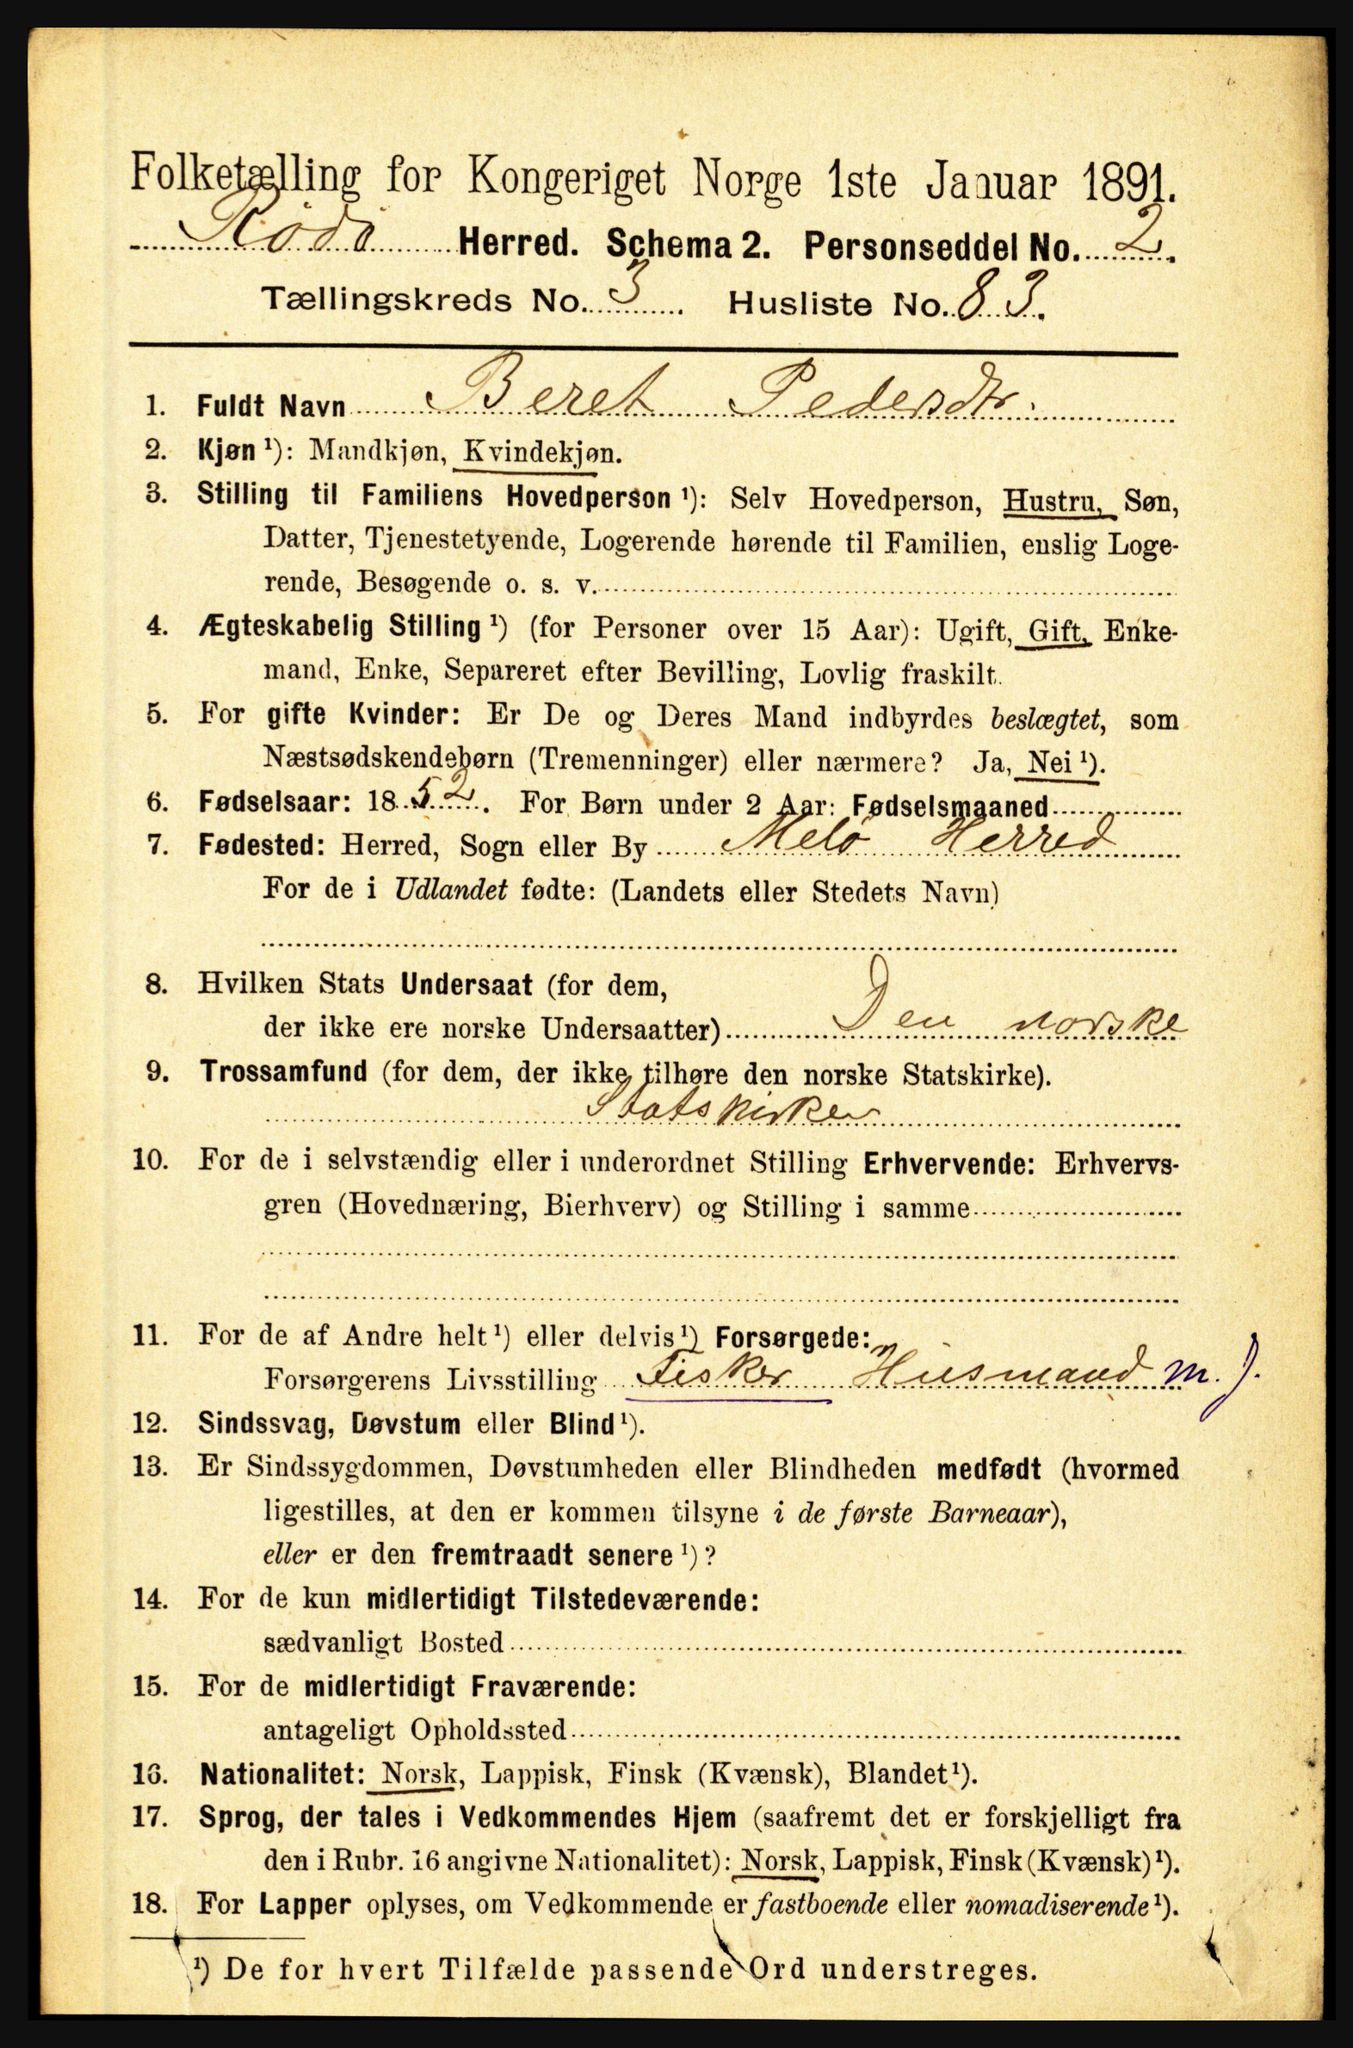 Folketælling for Kongeriget Norge 1ste Januar 1891.
Rödö Herred. Schema 2. Personseddel No. 2.
Tællingskreds No. 3. Husliste No. 83.
1. Fuldt Navn Beret Pedersdtr.
2. Kjøn ¹): Mandkjøn, Kvindekjøn.
3. Stilling til Familiens Hovedperson ¹): Selv Hovedperson, Hustru, Søn,
Datter, Tjenestetyende, Logerende hørende til Familien, enslig Loge-
rende, Besøgende o. s. v.
4. Ægteskabelig Stilling ¹) (for Personer over 15 Aar): Ugift, Gift, Enke-
mand, Enke, Separeret efter Bevilling, Lovlig fraskilt.
5. For gifte Kvinder: Er De og Deres Mand indbyrdes beslægtet, som
Næstsødskendebørn (Tremenninger) eller nærmere? Ja, Nei ¹).
6. Fødselsaar: 1852. For Børn under 2 Aar: Fødselsmaaned
7. Fødested: Herred, Sogn eller By Melö Herred
For de i Udlandet fødte: (Landets eller Stedets Navn)
8. Hvilken Stats Undersaat (for dem,
der ikke ere norske Undersaatter) Den norske
9. Trossamfund (for dem, der ikke tilhøre den norske Statskirke).
Statskirken
10. For de i selvstændig eller i underordnet Stilling Erhvervende: Erhvervs-
gren (Hovednæring, Bierhverv) og Stilling i samme
11. For de af Andre helt ¹) eller delvis ¹) Forsørgede:
Forsørgerens Livsstilling Fisker Husmand m. J.
12. Sindssvag, Døvstum eller Blind ¹).
13. Er Sindssygdommen, Døvstumheden eller Blindheden medfødt (hvormed
ligestilles, at den er kommen tilsyne i de første Barneaar),
eller er den fremtraadt senere ¹)?
14. For de kun midlertidigt Tilstedeværende:
sædvanligt Bosted
15. For de midlertidigt Fraværende:
antageligt Opholdssted
16. Nationalitet: Norsk, Lappisk, Finsk (Kvænsk), Blandet ¹).
17. Sprog, der tales i Vedkommendes Hjem (saafremt det er forskjelligt fra
den i Rubr. 16 angivne Nationalitet): Norsk, Lappisk, Finsk (Kvænsk) ¹).
18. For Lapper oplyses, om Vedkommende er fastboende eller nomadiserende ¹).
¹) De for hvert Tilfælde passende Ord understreges.